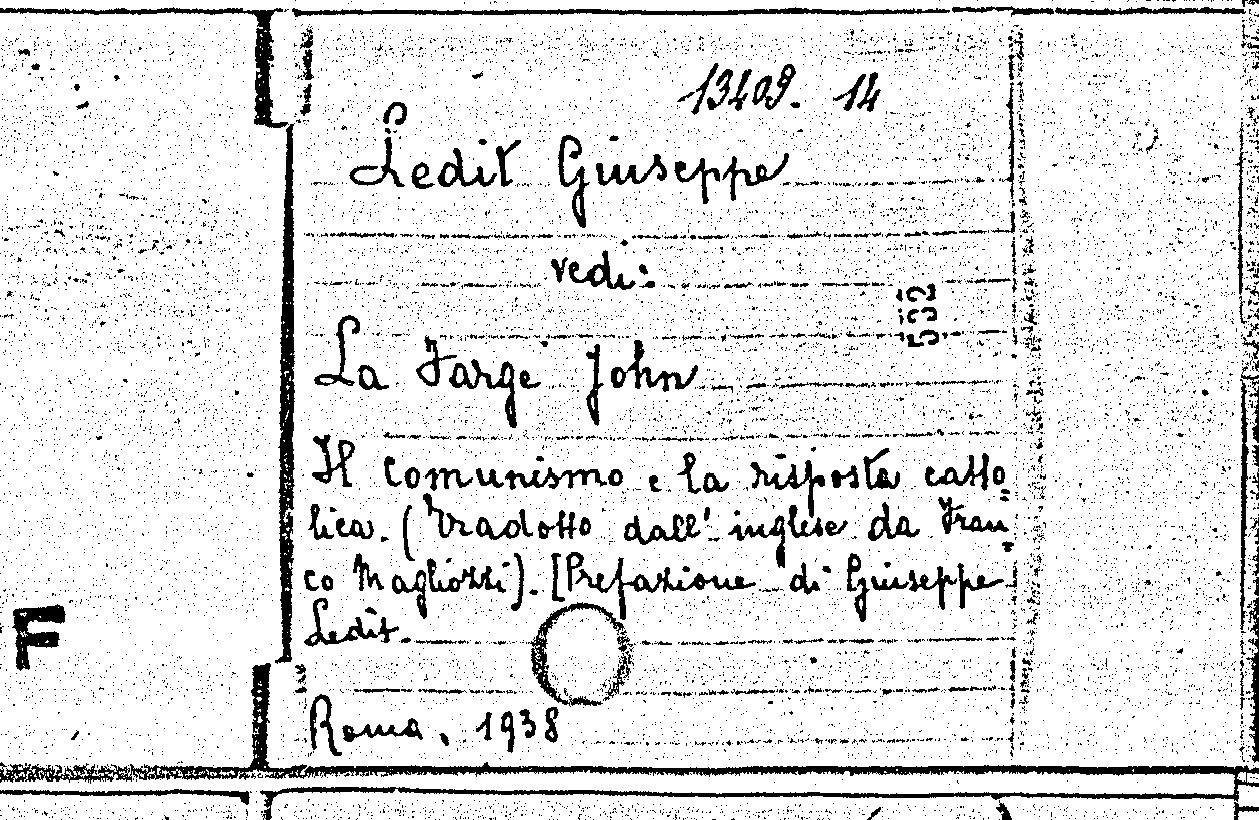 13409. 14
Ledit Giuseppe
vedi:
532
La Farge John
Il comunismo e la risposta catto=
lica. (Tradotto dall'inglese da Fran=
co Magliozzi). [Prefazione di Giuseppe
Ledit.
F
Roma, 1938